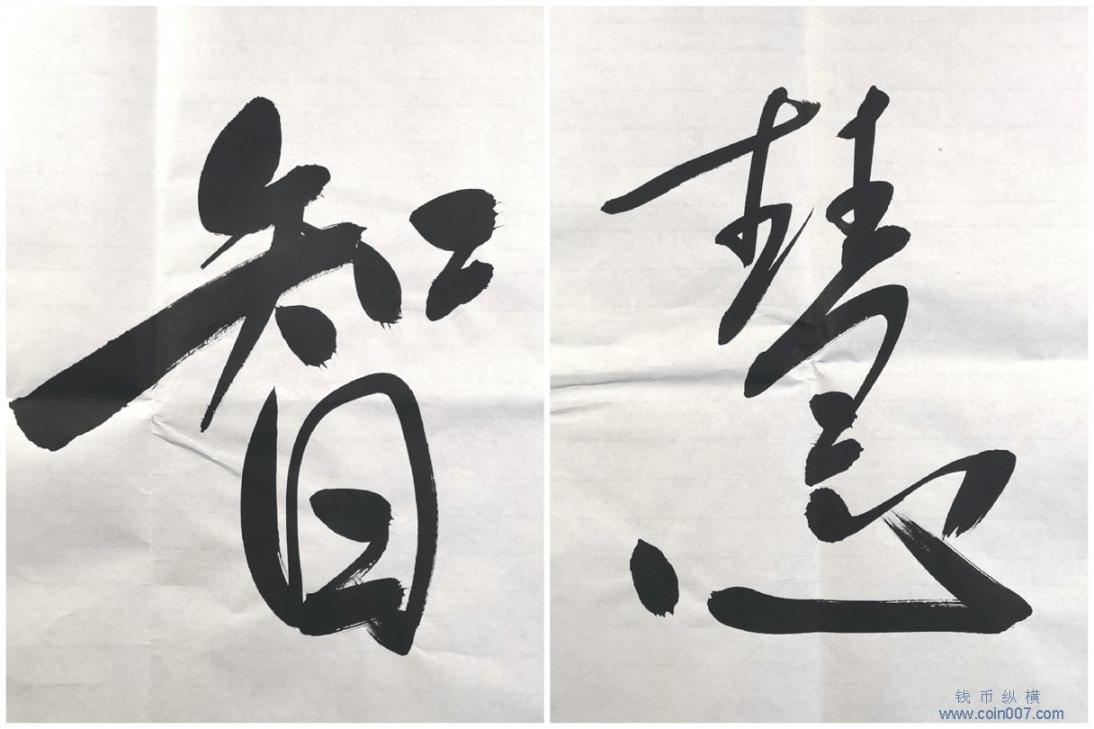 智慧
钱币纵横
www.coin007.com